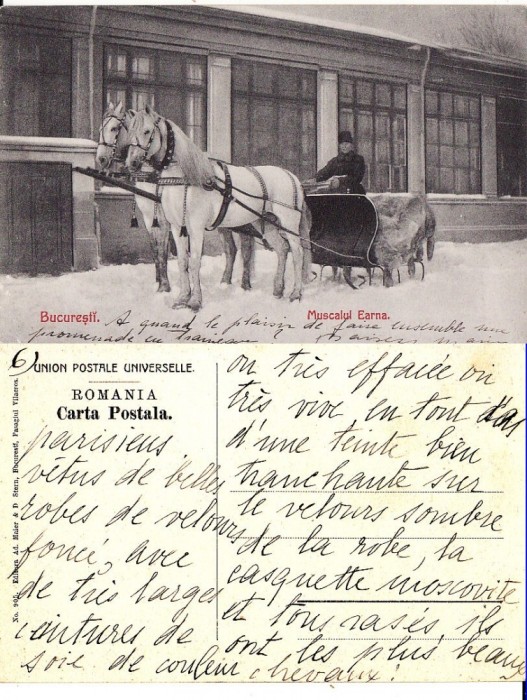 Bucureşti.
Muscalul Earna.
A quand le plaisir de faire ensemble une
promenade en traineau
6)
UNION POSTALE UNIVERSELLE.
ROMANIA
Carta Postala.
No. 905. Editura Ad. Maier & D. Stern, Bucureşti, Pasagiul Vilacros.
parisiens
vétus de belles
robes de velours
foncé, avec
de très larges
ceintures de
soie de couleur
ou très effacée ou
très vive en tout cas
d'une teinte bien
tranchante sur
le velours sombre
de la robe, la
casquette moscovite
et tous rasés, ils
ont les plus beaux
chevaux.